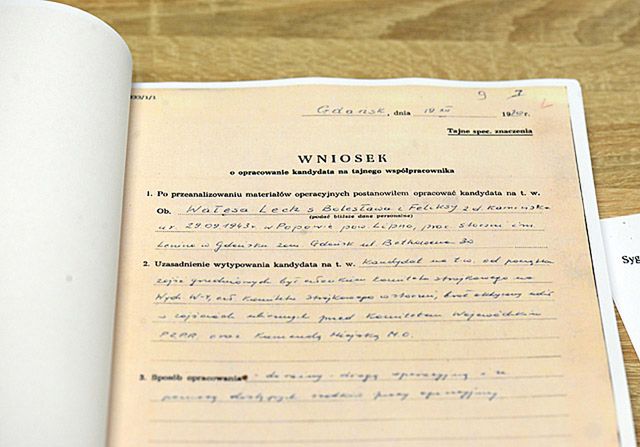 9 I
Gdańsk, dnia 19 XII 1970 r.
Tajne spec. znaczenia
WNIOSEK
o opracowanie kandydata na tajnego współpracownika
1. Po przeanalizowaniu materiałów operacyjnych postanowiłem opracować kandydata na t. w.
Ob. Wałęsa Lech s Bolesława i Feliksy z d. Kamińska
(podać bliższe dane personalne)
ur. 29.09.1943r. w Popowie pow. Lipno, prac. stoczni im
Lenina w Gdańsku zam Gdańsk ul. Bethovena 30
2. Uzasadnienie wytypowania kandydata na t. w. Kandydat na t.w. od początku
zajść grudniowych był członkiem komitetu strajkowego na
Wydz W-4, Komitetu strajkowego stoczni, brał aktywny udział
w zajściach ulicznych przed Komitetem Wojewódzkim
PZPR, oraz Komendą Miejską M.O.
3. Sposób opracowania - doraźny - drogą operacyjną i za
pomocą dostępnych środków pracy operacyjnej
Syg